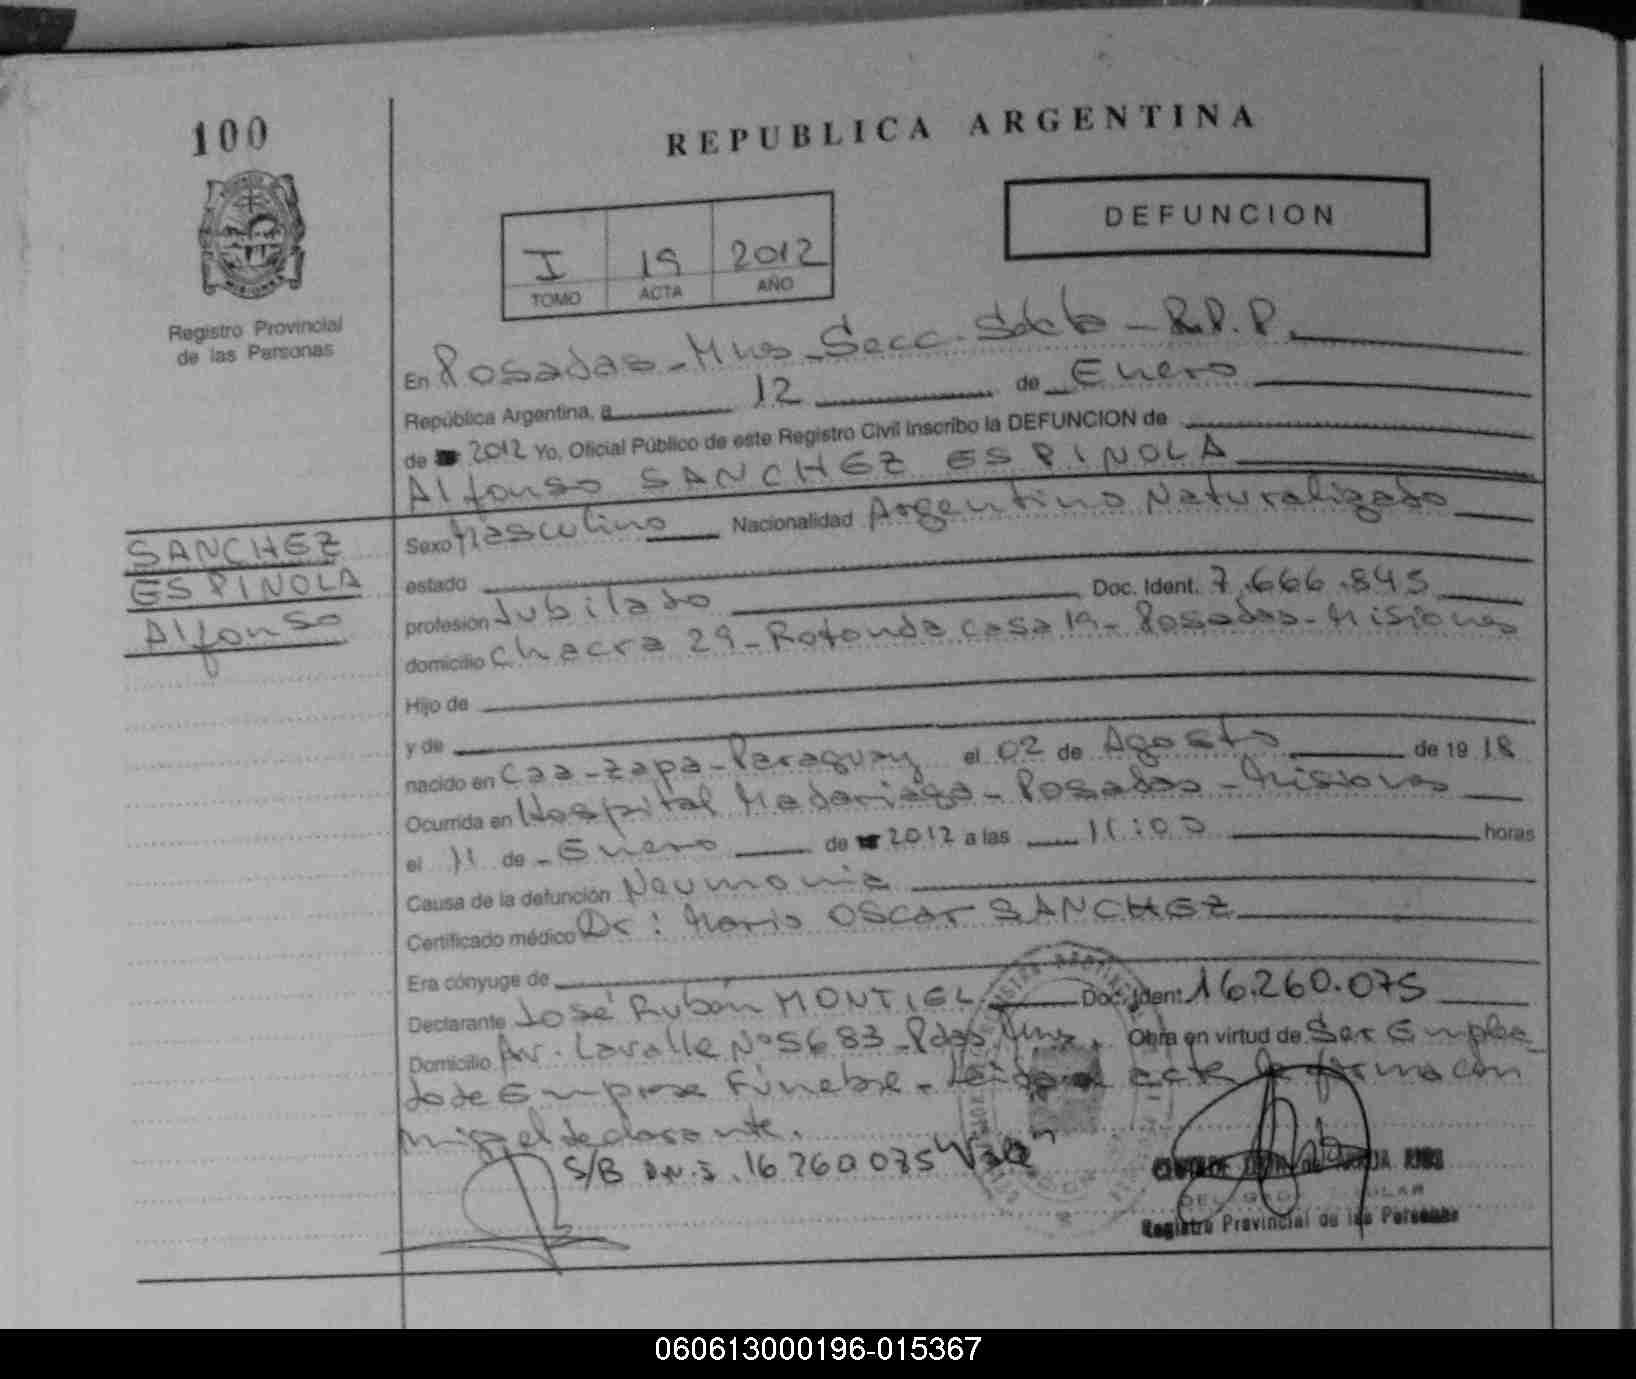 100
REPUBLICA ARGENTINA
DEFUNCION
I 19 2012
TOMO ACTA AÑO
Registro Provincial
de las Personas
En Posadas - Mnes - Secc. Sexta - R.P.P.
República Argentina, a 12 de Enero
de 2012 Yo, Oficial Público de este Registro Civil Inscribo la DEFUNCION de
Alfonso SANCHEZ ESPINOLA
SANCHEZ
ESPINOLA
Alfonso
Sexo Masculino Nacionalidad Argentino Naturalizado
estado
profesión Jubilado Doc. Ident. 7.666.845
domicilio Chacra 29 - Rotonda casa 19 - Posadas - Misiones
Hijo de
y de
nacido en Caa-zapa - Paraguay el 02 de Agosto de 1918
Ocurrida en Hospital Madariaga - Posadas - Misiones
el 11 de Enero de 2012 a las 11:00 horas
Causa de la defunción Neumonia
Certificado médico Dr: Mario Oscar SANCHEZ
Era cónyuge de
Declarante José Rubén MONTIEL Doc. Ident. 16.260.075
Domicilio Av. Lavalle Nº 5683 - Pdas. Mnes. Obra en virtud de Ser Emplea_
do de Empresa Fúnebre - Leida el acta la firma con
migo el declarante.
S/B D.N.I. 16.260.075 "Vale"
Registro Provincial de las Personas
060613000196-015367